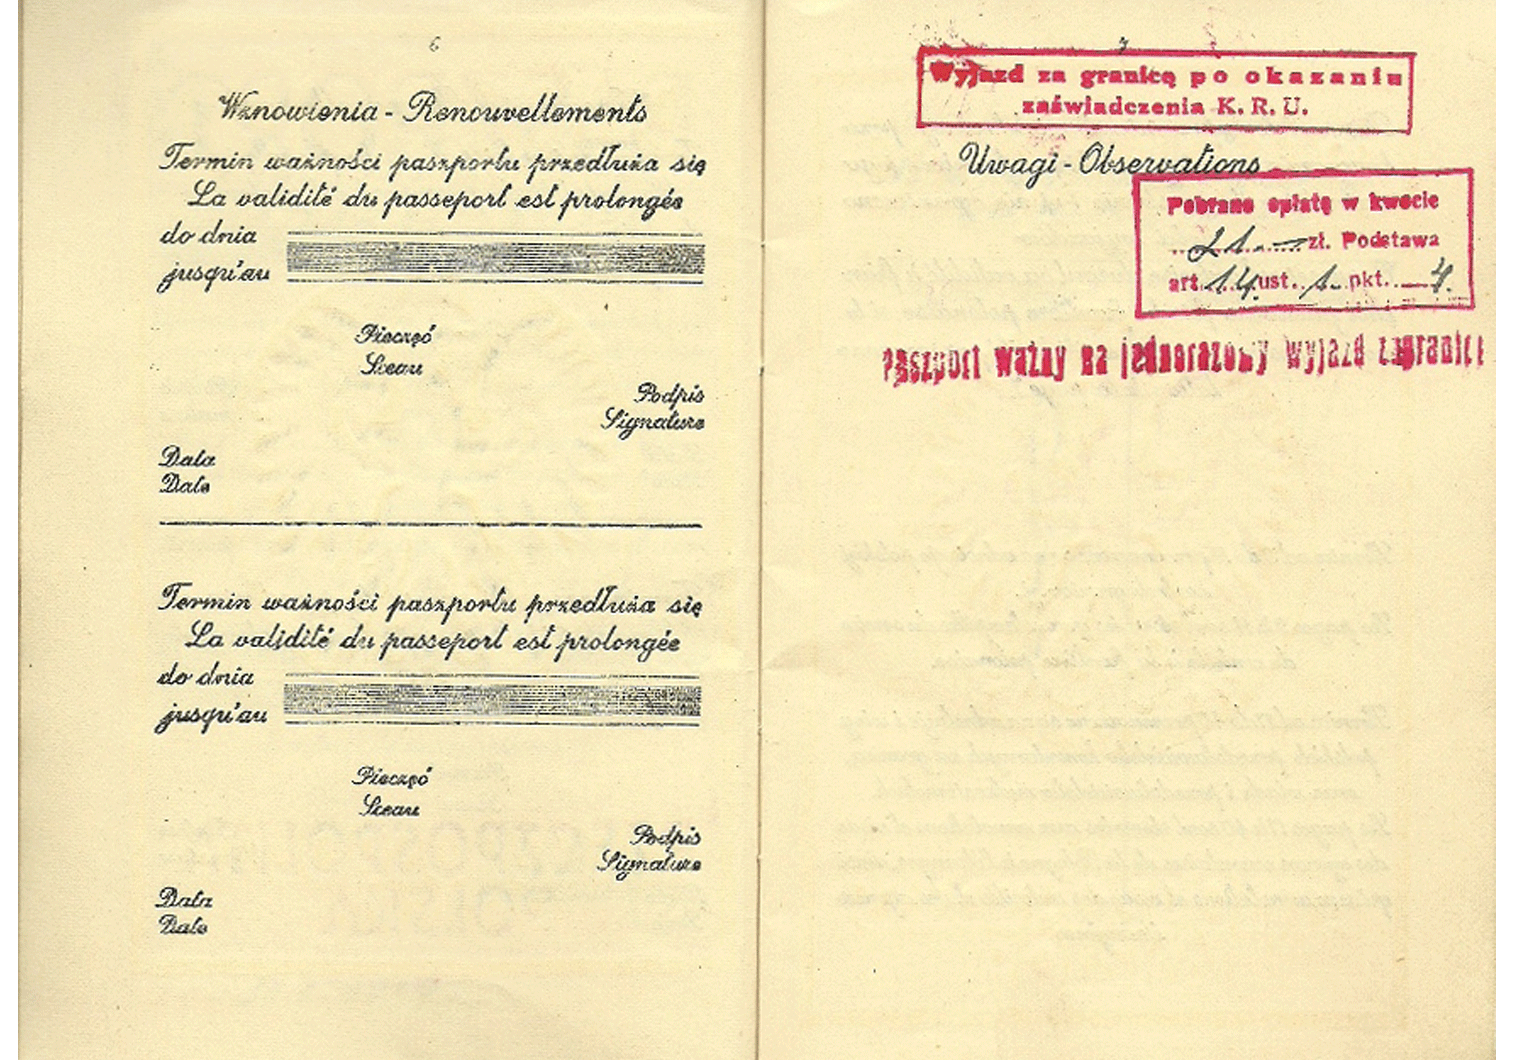 6
Wznowienia - Renouvellements
Termin ważności paszportu przedłuża się
La validité du passeport est prolongée
do dnia
jusqu'au
Pieczęć
Sceau
Podpis
Signature
Data
Date
Termin ważności paszportu przedłuża się
La validité du passeport est prolongée
do dnia
jusqu'au
Pieczęć
Sceau
Podpis
Signature
Data
Date
7
Wyjazd za granicę po okazaniu
zaświadczenia K. R. U.
Uwagi - Observations
Pobrano opłatę w kwocie
21.- zł. Podstawa
art. 14 ust. 1 pkt. 4.
Paszport ważny na jednorazowy wyjazd zagranicę